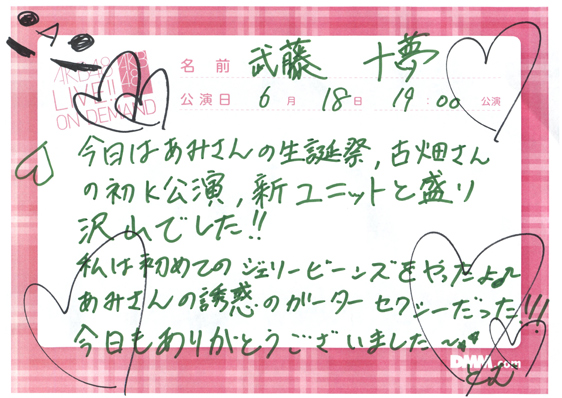 AKB48
LIVE!!
ON DEMAND
AKB
48
名前 武藤 十夢
公演日 6月 18日 19:00 公演
今日はあみさんの生誕祭,古畑さん
の初K公演,新ユニットと盛り
沢山でした!!
私は初めてのジェリービーンズをやったよ♪
あみさんの誘惑のガーターセクシーだった!!!
今日もありがとうございました〜♥♥
DMM.com
とむ